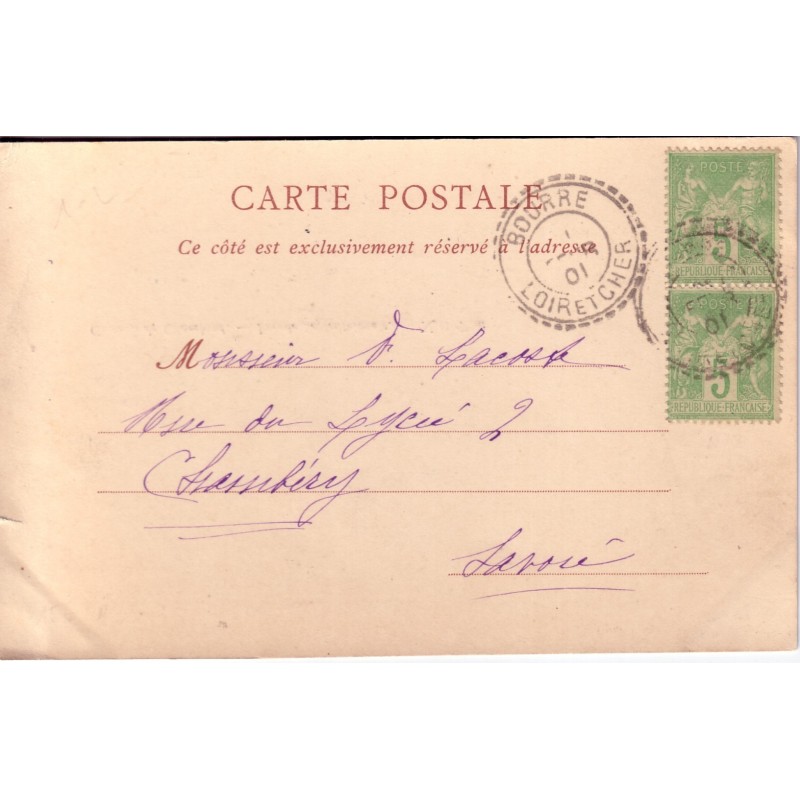 CARTE POSTALE
Ce côté est exclusivement réservé à l'adresse
BOURRE
01
LOIR ET CHER
POSTE
5
REPUBLIQUE FRANÇAISE
POSTE
01
5
REPUBLIQUE FRANÇAISE
Monsieur F. Lacoste
Rue du Lycée 2
Chambéry
Savoie